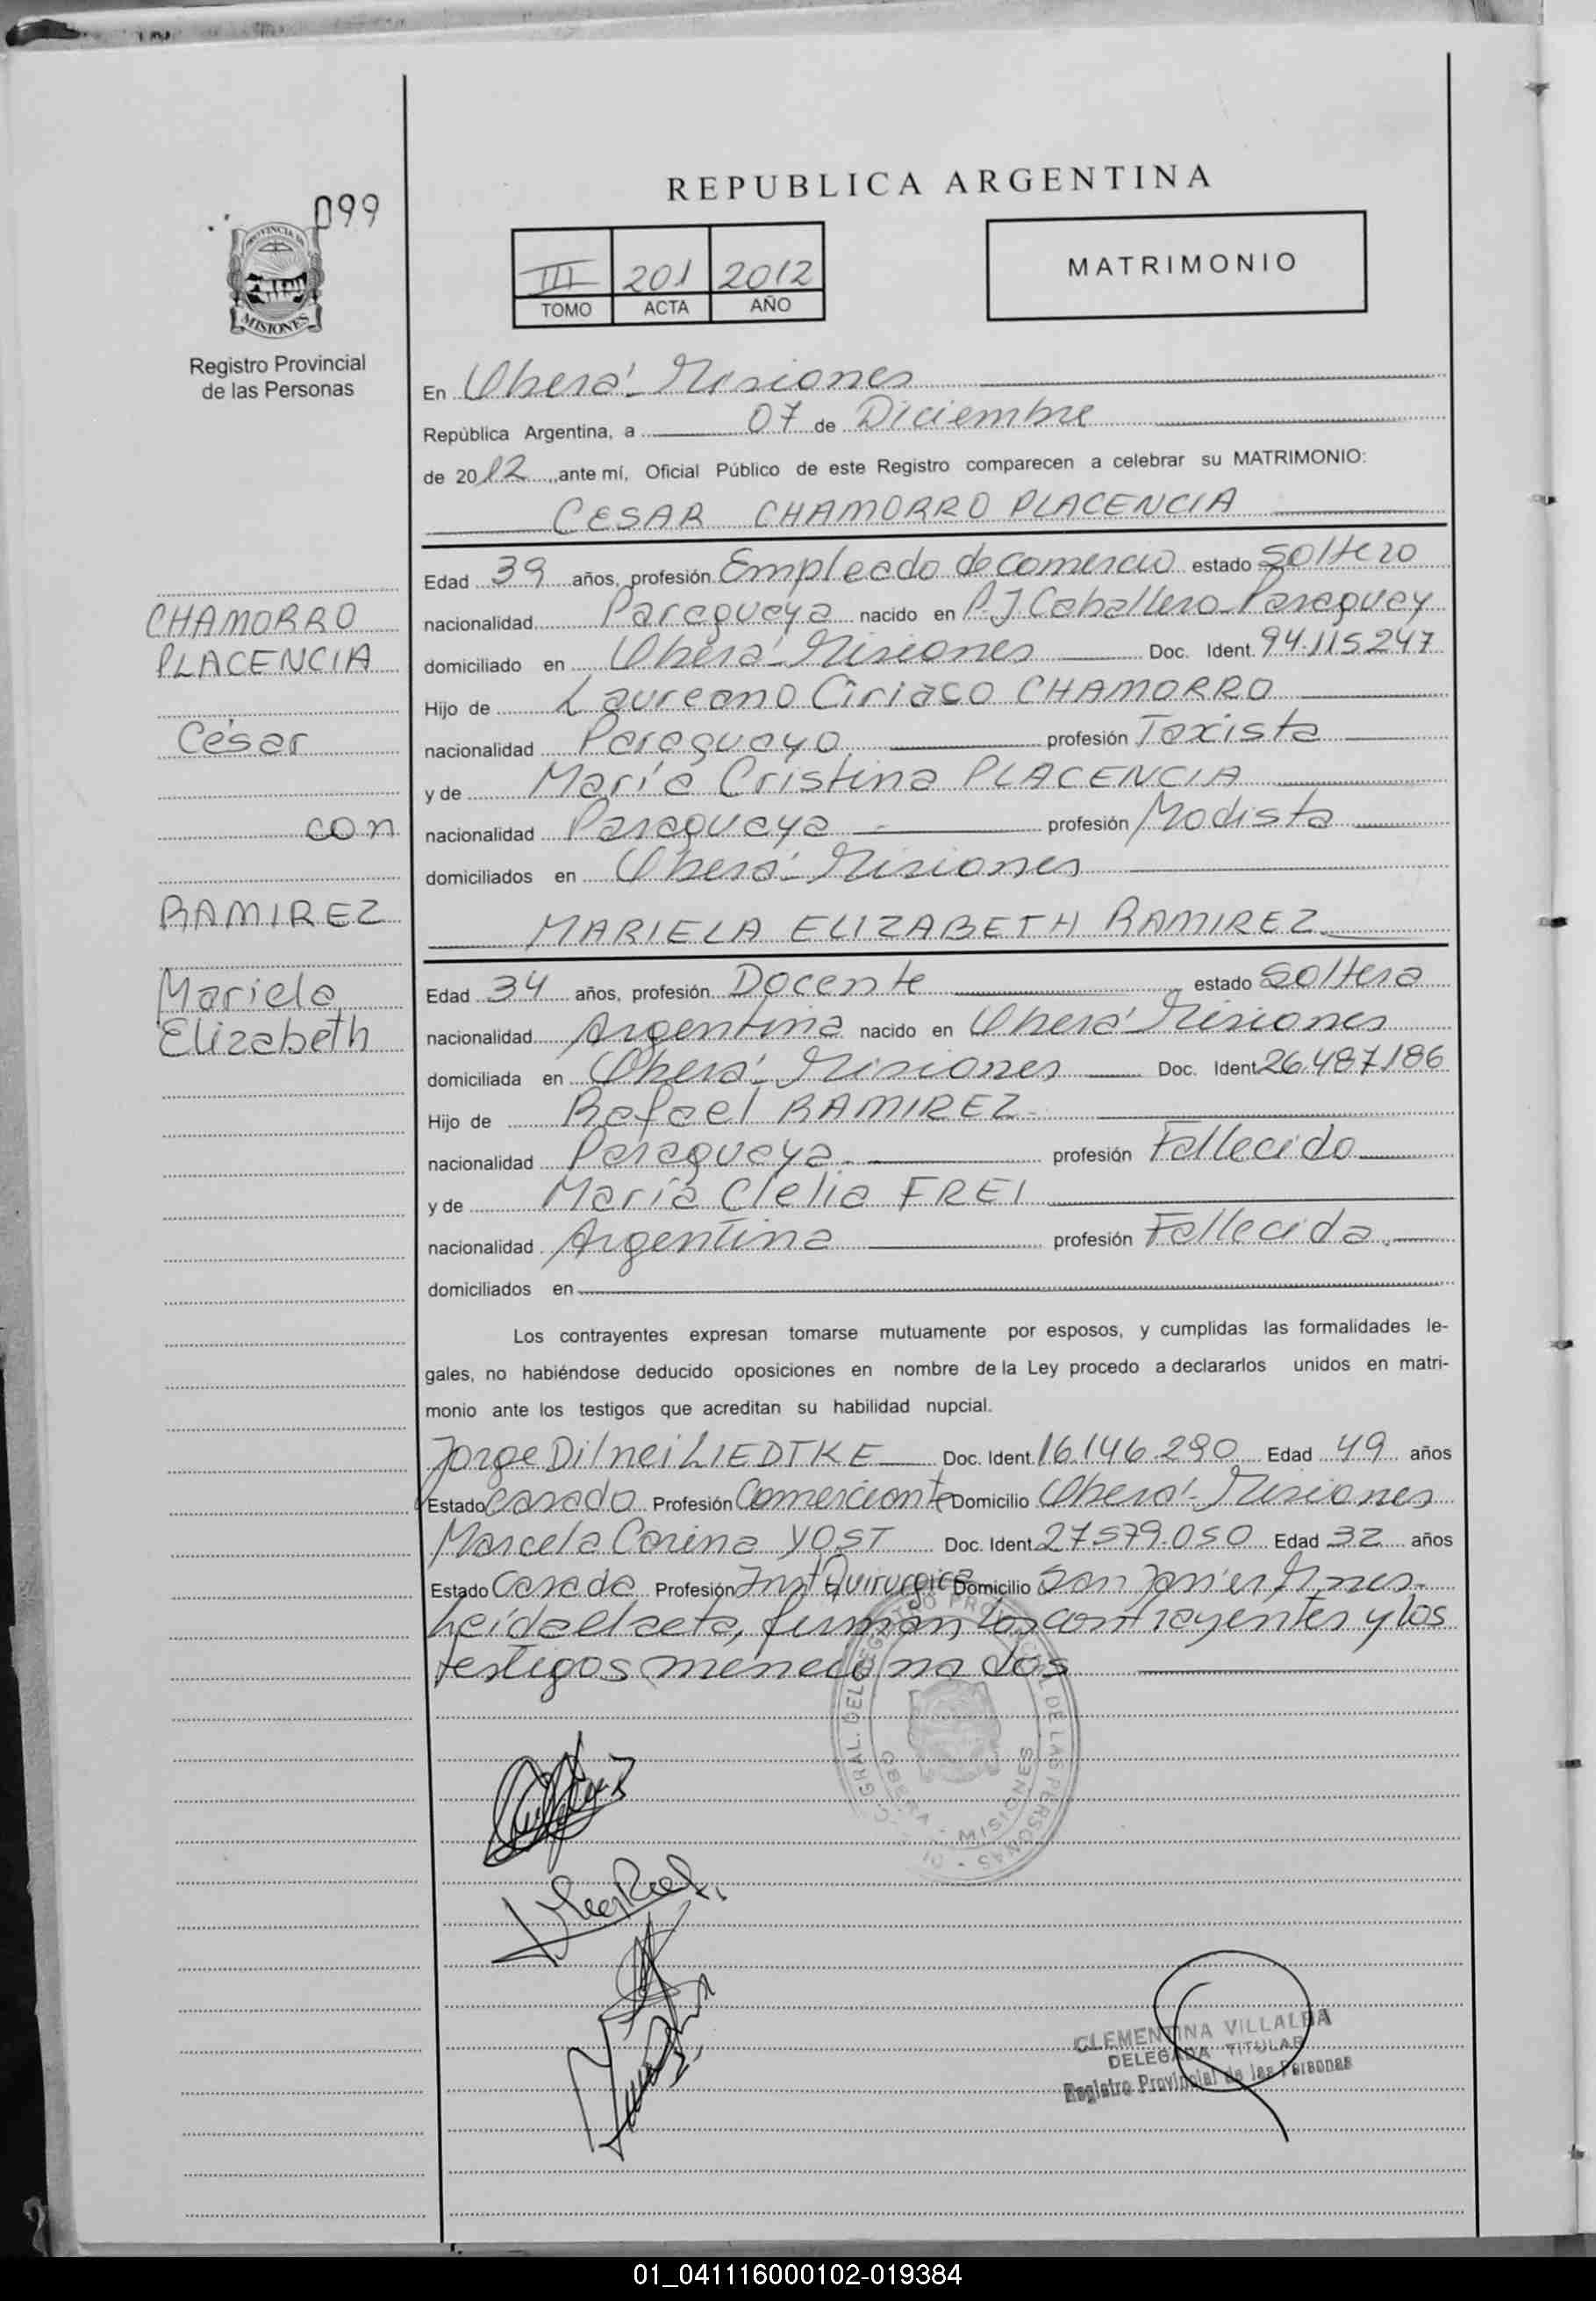 099
PROVINCIA DE
MISIONES
Registro Provincial
de las Personas
REPUBLICA ARGENTINA
III 201 2012
TOMO ACTA AÑO
MATRIMONIO
En Oberá - Misiones
República Argentina, a 07 de Diciembre
de 2012, ante mí, Oficial Público de este Registro comparecen a celebrar su MATRIMONIO:
CESAR CHAMORRO PLACENCIA
Edad 39 años, profesión Empleado de comercio estado soltero
nacionalidad Paraguaya nacido en P.J Caballero-Paraguay
domiciliado en Oberá - Misiones Doc. Ident. 94.115.247
Hijo de Laureano Ciriaco CHAMORRO
nacionalidad Paraguayo profesión Taxista
y de María Cristina PLACENCIA
nacionalidad Paraguaya - profesión Modista
domiciliados en Oberá - Misiones
MARIELA ELIZABETH RAMIREZ
CHAMORRO
PLACENCIA
César
con
RAMIREZ
Mariela
Elizabeth
Edad 34 años, profesión Docente estado soltera
nacionalidad Argentina nacido en Oberá - Misiones
domiciliada en Oberá - Misiones Doc. Ident 26.487.186
Hijo de Rafael RAMIREZ -
nacionalidad Paraguaya profesión Fallecido
y de María Clelia FREI
nacionalidad Argentina profesión Fallecida
domiciliados en
Los contrayentes expresan tomarse mutuamente por esposos, y cumplidas las formalidades le-
gales, no habiéndose deducido oposiciones en nombre de la Ley procedo a declararlos unidos en matri-
monio ante los testigos que acreditan su habilidad nupcial.
Jorge Dilnei LIEDTKE Doc. Ident. 16.146.290 Edad 49 años
Estado casado Profesión Comerciante Domicilio Oberá - Misiones
Marcela Corina YOST Doc. Ident. 27.579.050 Edad 32 años
Estado Casada Profesión Inst Quirurgica Domicilio San Javier Mnes.
Leída el acta, firman, los contrayentes y los
testigos mencionados
GRAL. DEL REGISTRO PROVINCIAL DE LAS PERSONAS
OBERA - MISIONES
CLEMENTINA VILLALBA
DELEGADA TITULAR
Registro Provincial de las Personas
01_041116000102-019384